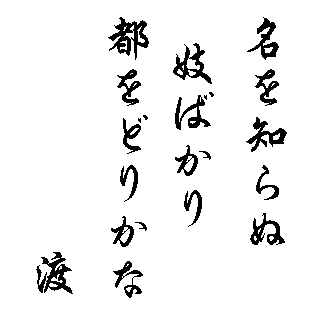 名を知らぬ
妓ばかり
都をどりかな
渡